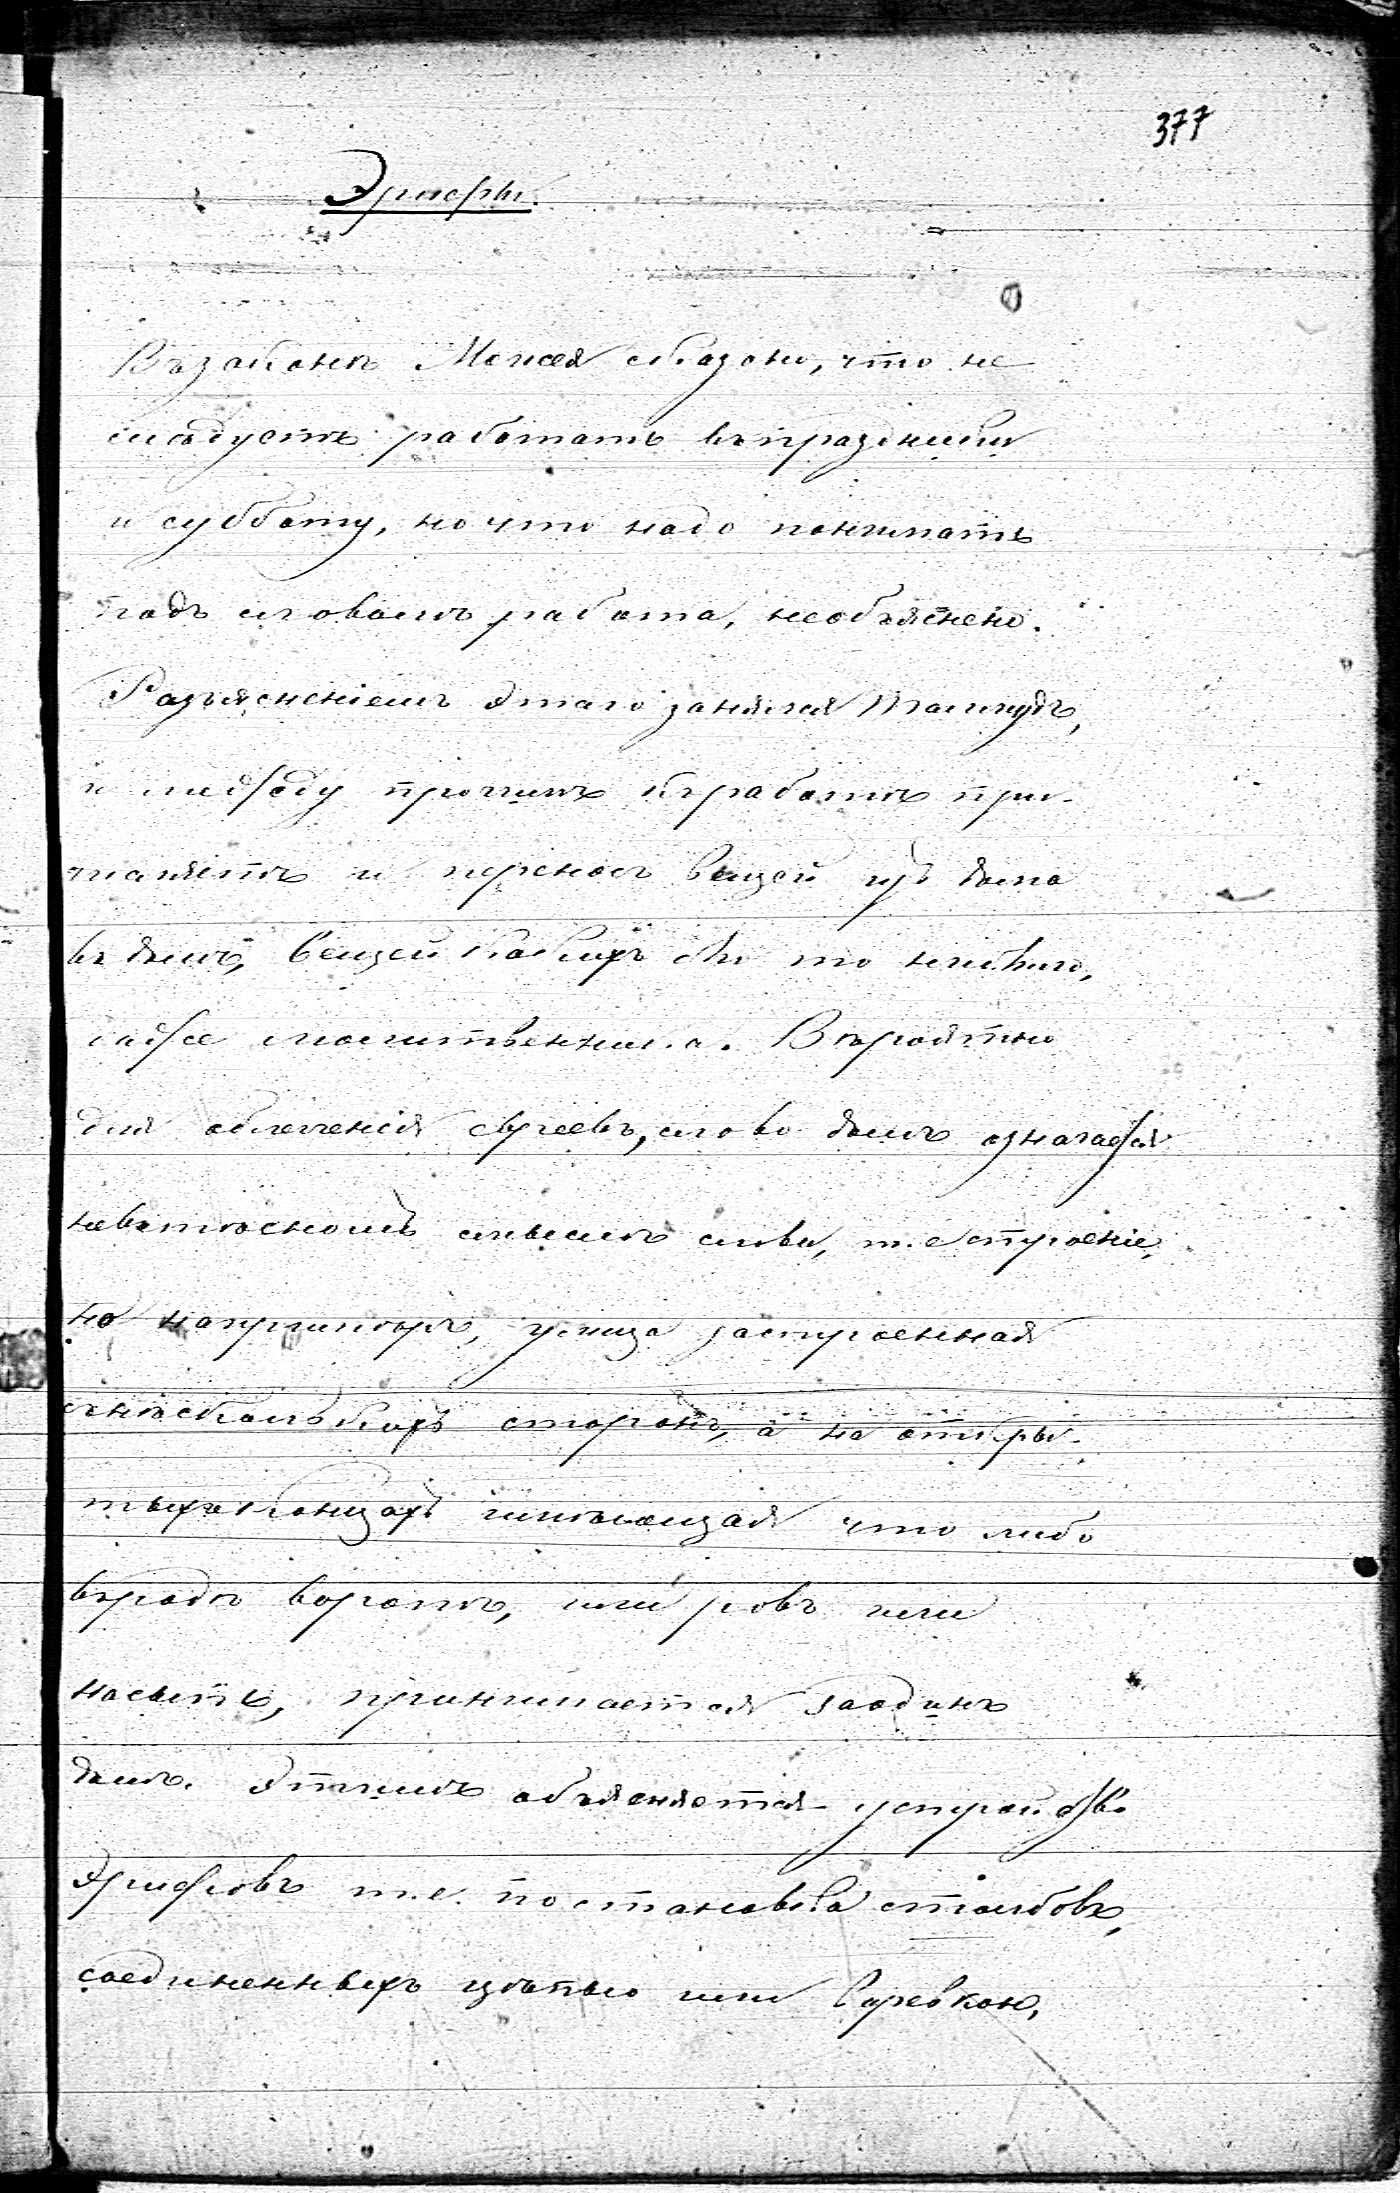 377
Эрисры.
Въ законѣ Моисея сказано, что не
слѣдуетъ работать въ праздники
и субботу, но что надо понимать
подъ словомъ работа, необъяснено.
Разъясненіемъ этаго занялся Талмудъ,
и между прочимъ къ работѣ при-
числяетъ и переносъ вещей изъ дома
въ домъ, вещей какихъ бы то нибыло,
даже молитвенника. Вѣроятно
для облегченія евреевъ, слово домъ означается
не въ тѣсномъ смыслѣ слова, т.е строеніе,
но напримѣръ, улица застроенная
съ нѣсколькихъ сторонъ, а на откры-
тыхъ концахъ имѣющая что либо
въ родѣ воротъ, или ровъ или
насыпь, принимается за одинъ
домъ. Этимъ объясняется устройство
Эрисровъ т.е. постановка столбовъ,
соединенныхъ цѣпью или веревкою,